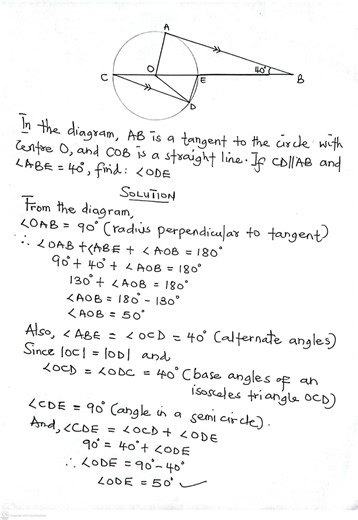 A
C
O
E
40°
B
D
In the diagram, AB is a tangent to the circle with
centre O, and COB is a straight line. If CD||AB and
∠ABE = 40°, find: ∠ODE
SOLUTION
From the diagram,
∠OAB = 90° (radius perpendicular to tangent)
∴ ∠OAB + ∠ABE + ∠AOB = 180°
90° + 40° + ∠AOB = 180°
130° + ∠AOB = 180°
∠AOB = 180° - 130°
∠AOB = 50°
Also, ∠ABE = ∠OCD = 40° (alternate angles)
Since |OC| = |OD| and
∠OCD = ∠ODC = 40° (base angles of an
isosceles triangle OCD)
∠CDE = 90° (angle in a semicircle).
And, ∠CDE = ∠OCD + ∠ODE
90° = 40° + ∠ODE
∴ ∠ODE = 90° - 40°
∠ODE = 50° ✓